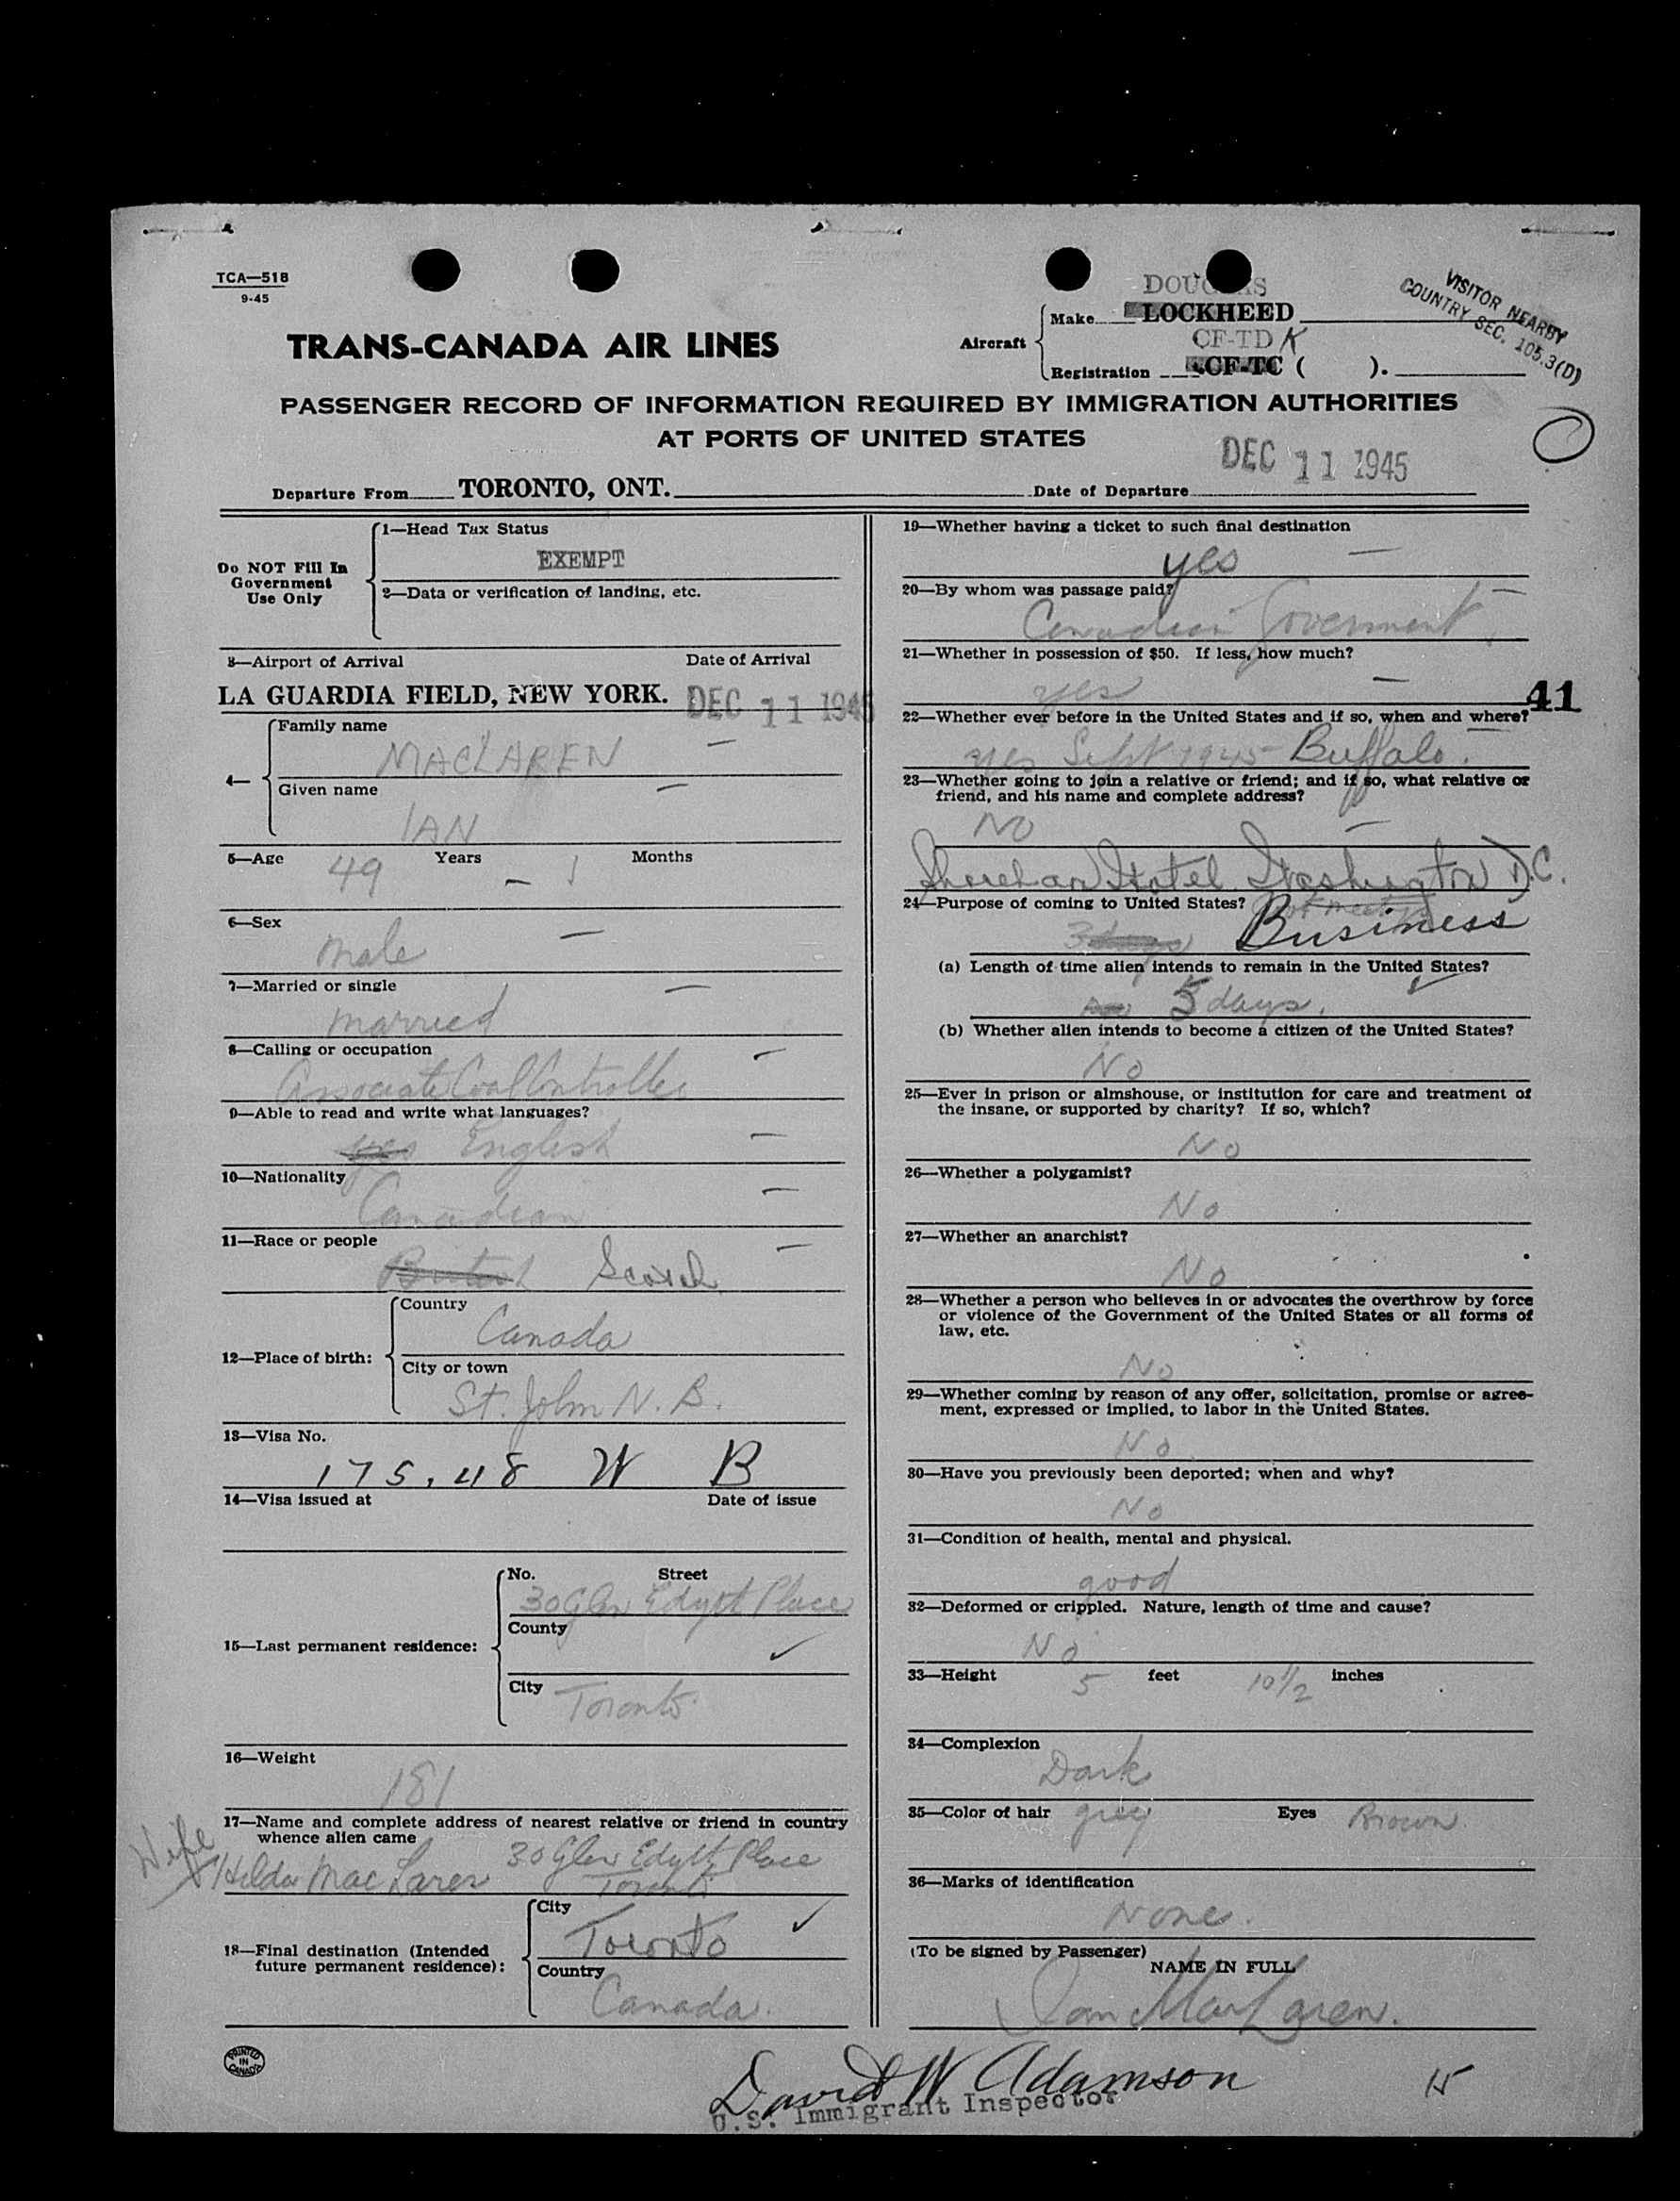 TCA—518
9-45
TRANS-CANADA AIR LINES
DOUGLAS
Aircraft
Make LOCKHEED
CF-TDK
Registration CF-TC ( ).
VISITOR NEARBY
COUNTRY SEC. 105.3(D)
PASSENGER RECORD OF INFORMATION REQUIRED BY IMMIGRATION AUTHORITIES
AT PORTS OF UNITED STATES
DEC 11 1945
Departure From TORONTO, ONT. Date of Departure
Do NOT Fill In
Government
Use Only
1—Head Tax Status
EXEMPT
2—Data or verification of landing, etc.
3—Airport of Arrival Date of Arrival
LA GUARDIA FIELD, NEW YORK. DEC 11 1945
4—
Family name
MACLAREN
Given name
IAN
5—Age 49 Years 1 Months
6—Sex
Male
7—Married or single
Married
8—Calling or occupation
Associate Coal Controller
9—Able to read and write what languages?
yes English
10—Nationality
Canadian
11—Race or people
British Scotch
12—Place of birth:
Country
Canada
City or town
St. John N. B.
13—Visa No.
175.48 W B
14—Visa issued at Date of issue
15—Last permanent residence:
No. Street
30 Glen Edyth Place
County
City Toronto
16—Weight
181
17—Name and complete address of nearest relative or friend in country
whence alien came
Wife
Hilda MacLaren 30 Glen Edyth Place
Toronto
18—Final destination (Intended
future permanent residence):
City
Toronto
Country
Canada.
PRINTED
IN
CANADA
19—Whether having a ticket to such final destination
yes
20—By whom was passage paid?
Canadian Government
21—Whether in possession of $50. If less, how much?
yes
41
22—Whether ever before in the United States and if so, when and where?
yes Sept 1945 Buffalo.
23—Whether going to join a relative or friend; and if so, what relative or
friend, and his name and complete address?
NO
Shoreham Hotel Washington D.C.
24—Purpose of coming to United States?
3 days Business
(a) Length of time alien intends to remain in the United States?
5 days.
(b) Whether alien intends to become a citizen of the United States?
No
25—Ever in prison or almshouse, or institution for care and treatment of
the insane, or supported by charity? If so, which?
No
26—Whether a polygamist?
No
27—Whether an anarchist?
No
28—Whether a person who believes in or advocates the overthrow by force
or violence of the Government of the United States or all forms of
law, etc.
No
29—Whether coming by reason of any offer, solicitation, promise or agree-
ment, expressed or implied, to labor in the United States.
No
30—Have you previously been deported; when and why?
No
31—Condition of health, mental and physical.
good
32—Deformed or crippled. Nature, length of time and cause?
No
33—Height 5 feet 10 1/2 inches
34—Complexion
Dark
35—Color of hair grey Eyes Brown
36—Marks of identification
None.
(To be signed by Passenger)
NAME IN FULL
Ian MacLaren.
David W Adamson
U.S. Immigrant Inspector
15